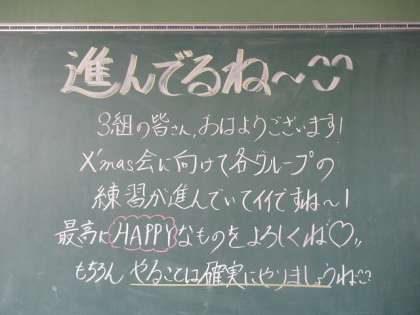 進んでるね〜
3組の皆さん、おはようございます!
X'mas会に向けて各グループの
練習が進んでいてイイですね〜!
最高にHAPPYなものをよろしくね♡〃
もちろん やることは確実にやりましょうね